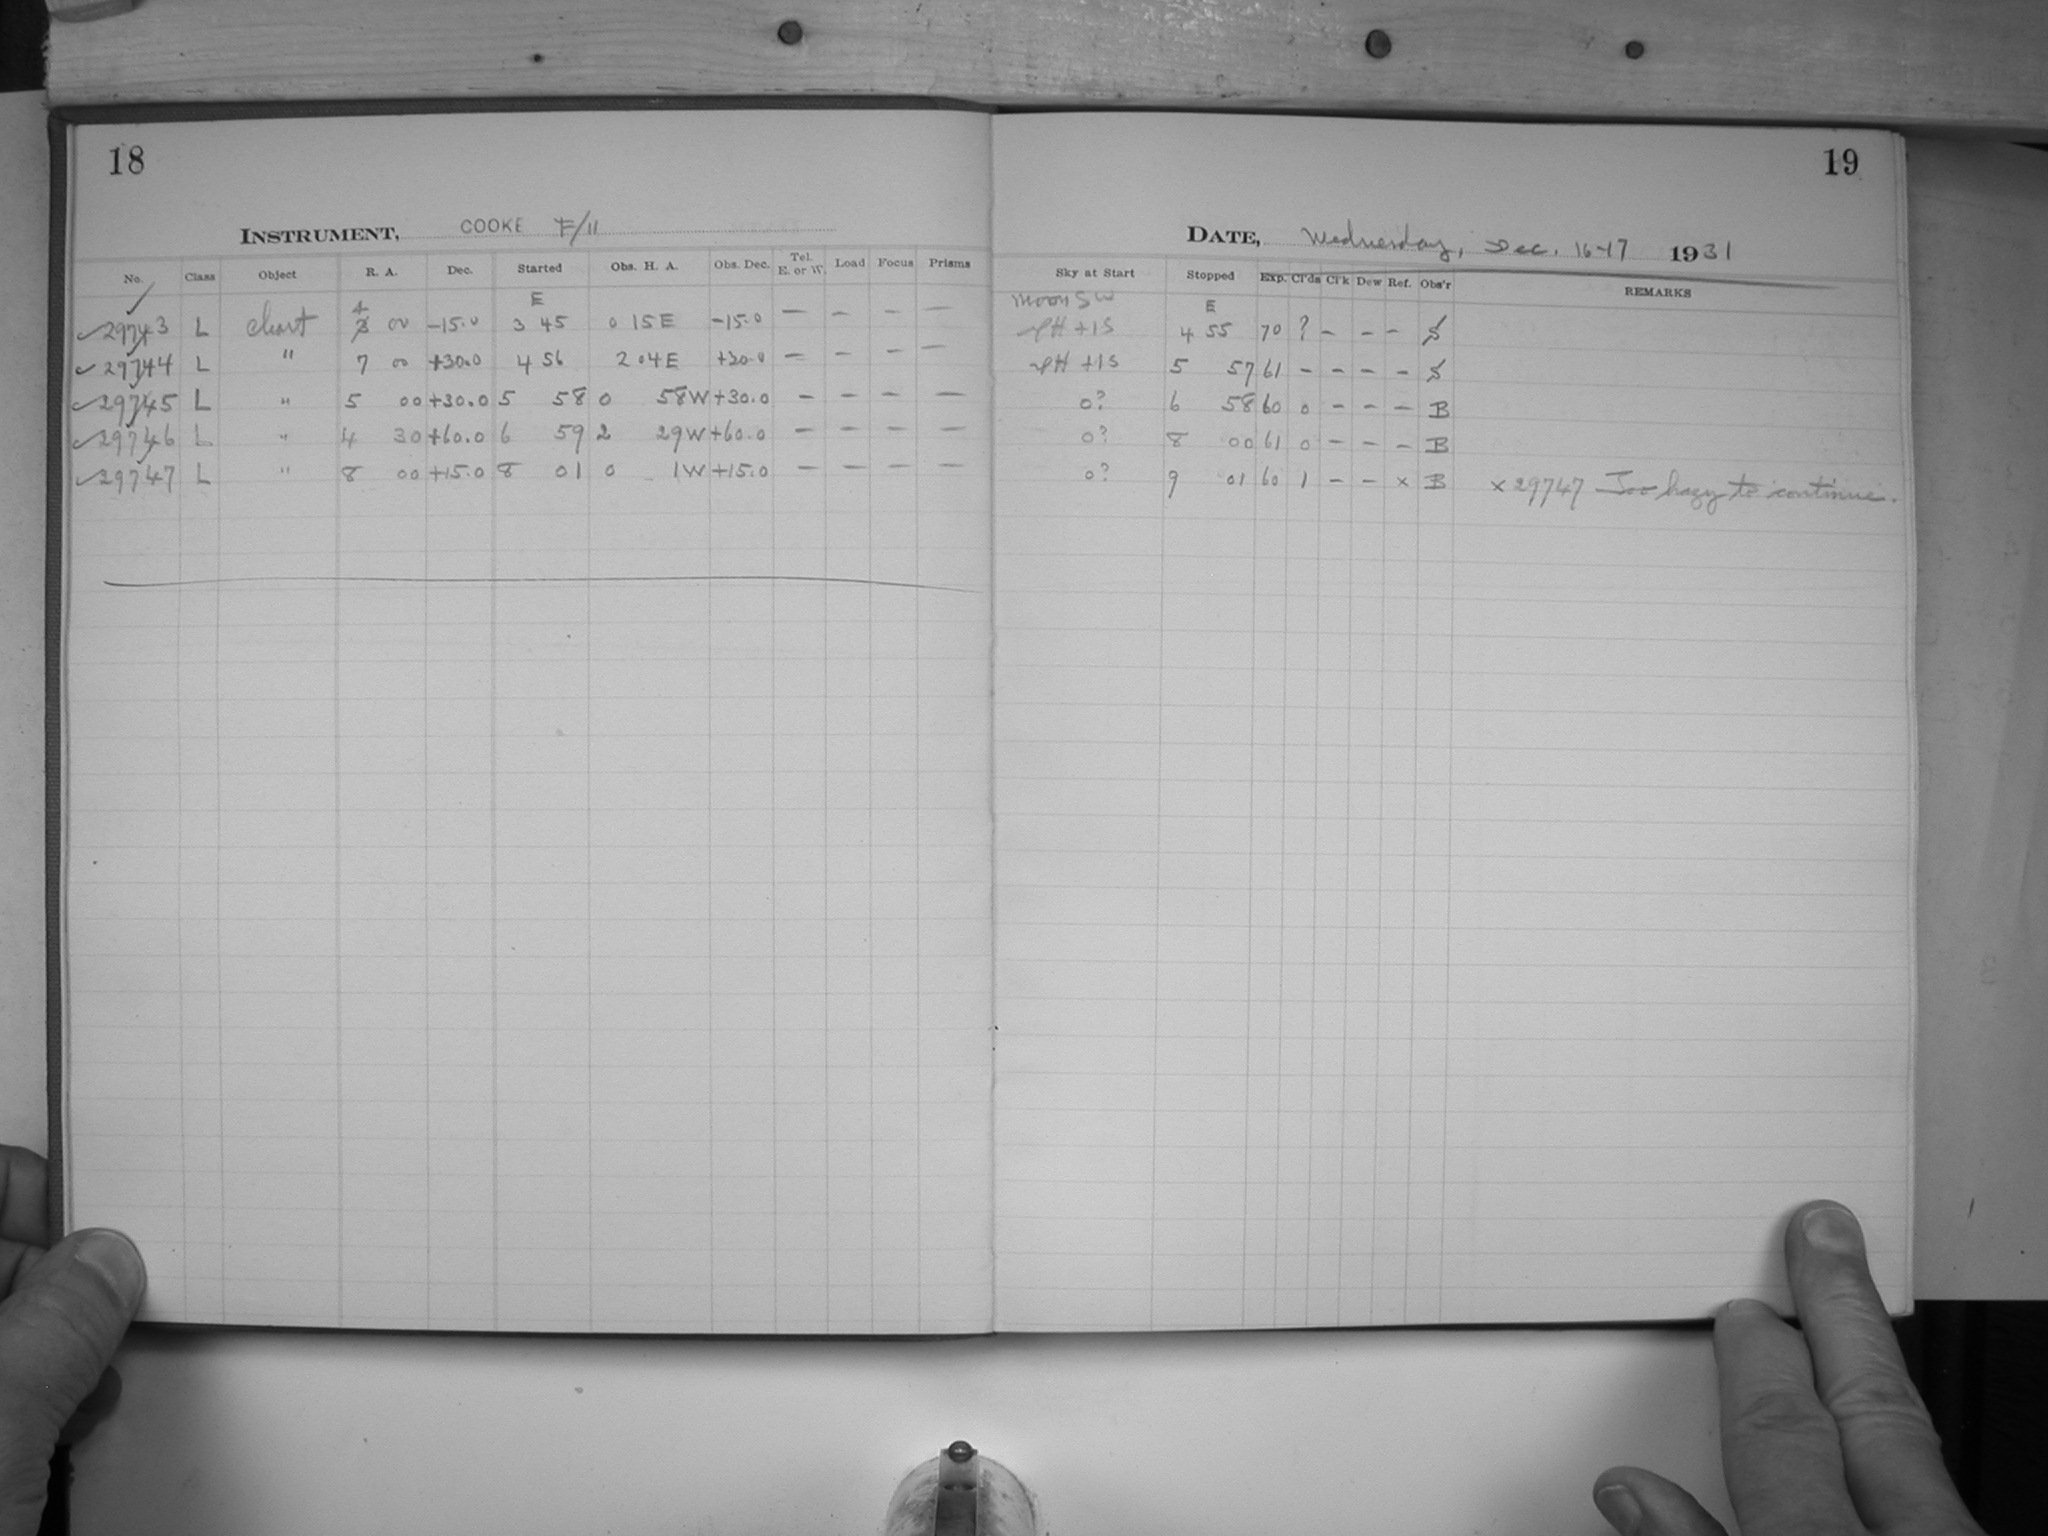 18
INSTRUMENT, COOKE F/11
No. Class Object R. A. Dec. Started Obs. H. A. Obs. Dec. Tel. E. or W. Load Focus Prisms
E
4
29743 L chart 3 00 -15.0 3 45 0 15E -15.0 — — — —
29744 L " 7 00 +30.0 4 56 2 04E +30.0 — — — —
29745 L " 5 00 +30.0 5 58 0 58W +30.0 — — — —
29746 L " 4 30 +60.0 6 59 2 29W +60.0 — — — —
29747 L " 8 00 +15.0 8 01 0 1W +15.0 — — — —
19
DATE, Wednesday, Dec. 16-17 1931
Sky at Start Stopped Exp. Cl'ds Cl'k Dew Ref. Obs'r REMARKS
Moon SW E
+1S 4 55 70 ? — — — S
+1S 5 57 61 — — — — S
0? 6 58 60 0 — — — B
0? 8 00 61 0 — — — B
0? 9 01 60 1 — — x B x 29747 Too hazy to continue.